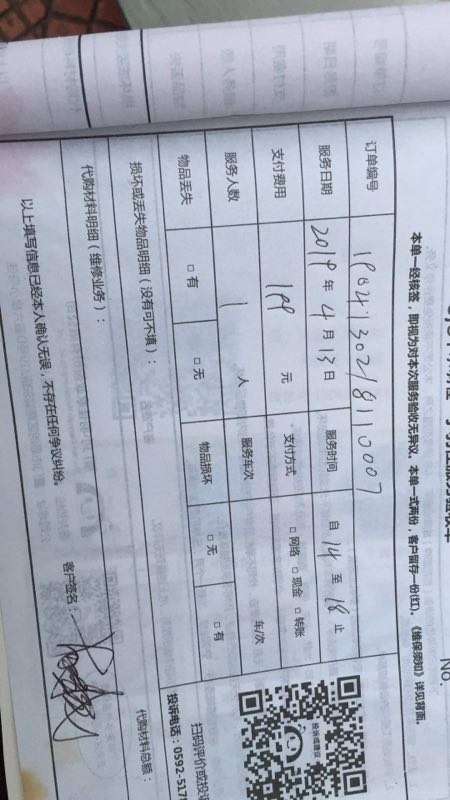 No.
本单一经核签，即视为对本次服务验收无异议。本单一式两份，客户留存一份(红)。《维保须知》详见背面。
订单编号
服务日期 2019 年 4 月 13 日 服务时间 自 14 至 18 止
支付费用 199 元 支付方式 □网络 □现金 □转账
服务人数 1 人 服务车次 车/次
物品丢失 □有 □无 物品损坏 □无 □有
损坏或丢失物品明细（没有可不填）：
代购材料明细（维修业务）：
代购材料总额：
以上填写信息已经本人确认无误，不存在任何争议纠纷。
客户签名：
投诉或建议
扫码评价或投诉
投诉电话：0592-517